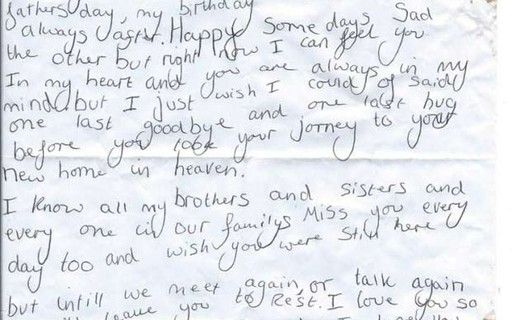 fathers day, my birthday
always last. Happy some days, Sad
the other but right now I can feel you
In my heart and you are always in my
mind but I just wish I could of said
one last goodbye and one last hug
before you took your jorney to your
new home in heaven.
I know all my brothers and sisters and
every one in our familys Miss you every
day too and wish you were still here
but intill we meet again, or talk again
leave you to Rest. I love you so